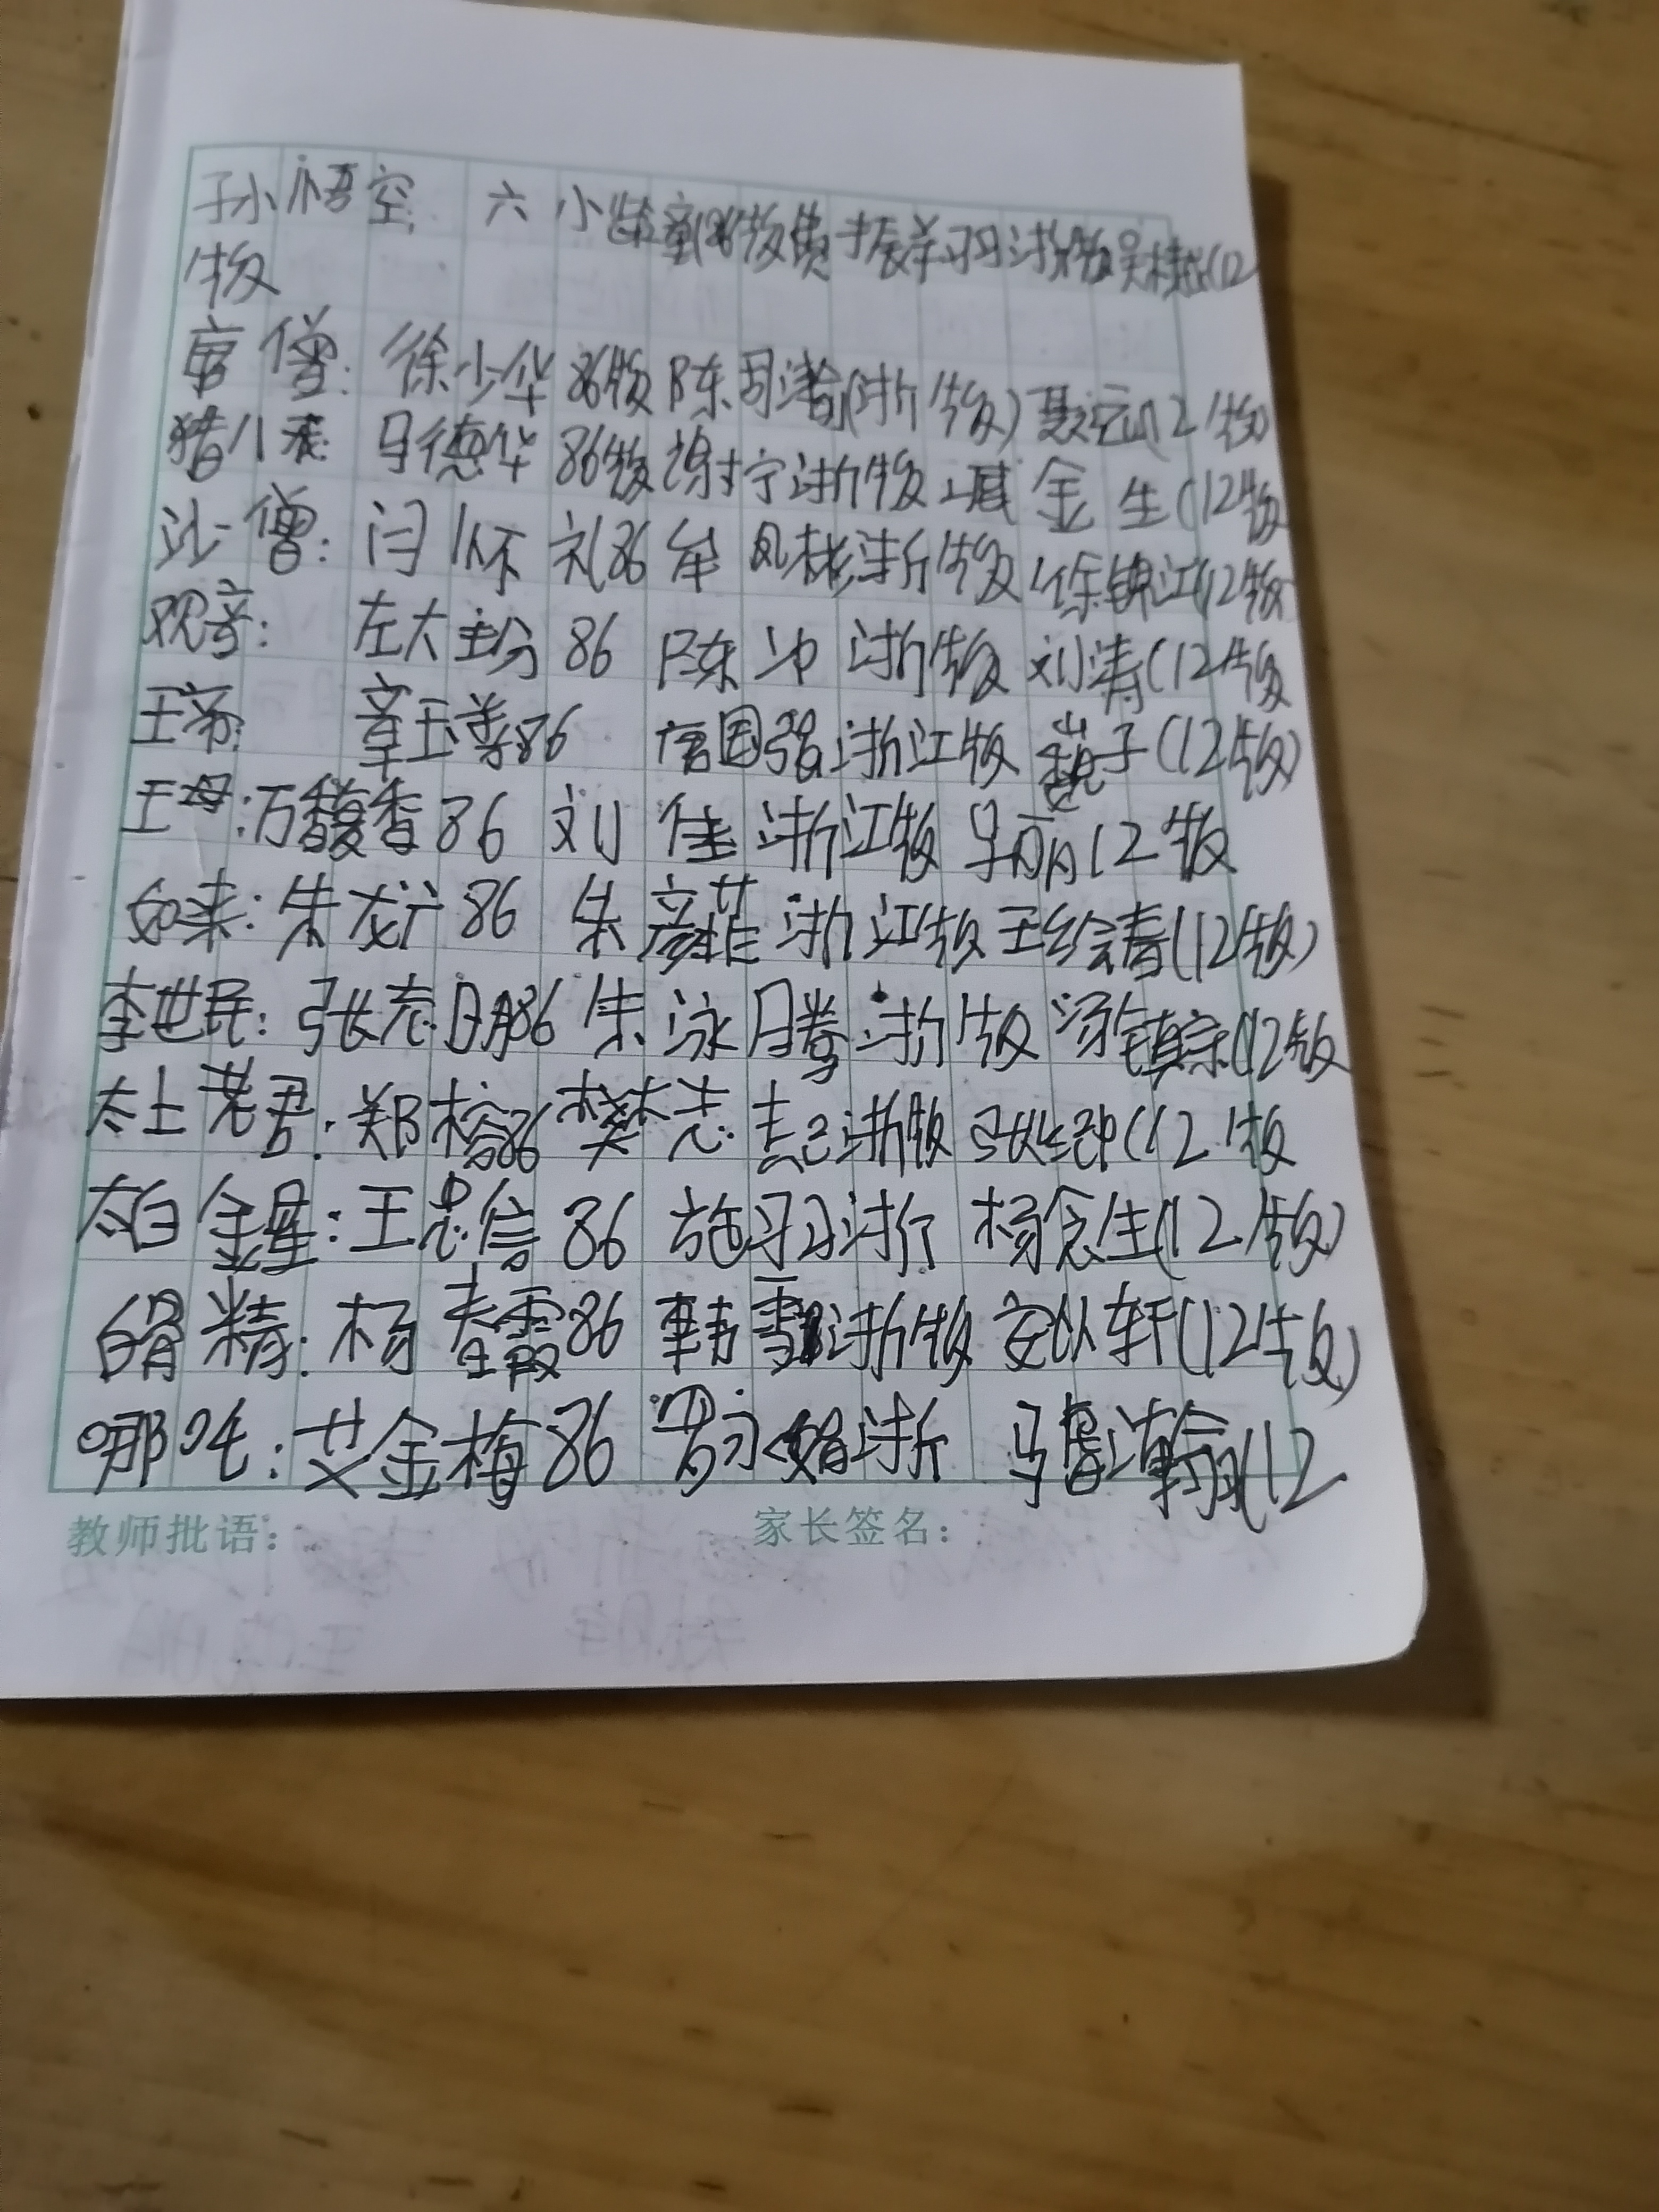 孙悟空 六小龄童(86版费振羊羽浙版吴樾(12
版
唐僧: 徐少华86版陈司瀚(浙版)聂远(12版)
猪八 马德华86版谢宁浙版 金生(12版
沙僧: 闫怀礼86牟凤彬浙版徐锦江(12版
观音: 左大玢86 陈冲浙版刘涛(12版
玉帝: 章玉善86 唐国强浙江版 子(12版)
王母:万馥香86 刘佳浙江版 丽12版
如来:朱龙广86 朱彦菲浙江版王绘春(12版)
李世民:张志明86朱泳腾浙版汤镇宗(12版
太上老君:郑榕86樊志起浙版 (12版
太白金星:王忠信86 施羽浙 杨念生(12版)
白骨精:杨春霞86 韩雪浙版安以轩(12版)
哪吒:艾金梅86 罗永娟浙 马 (12
教师批语: 家长签名: